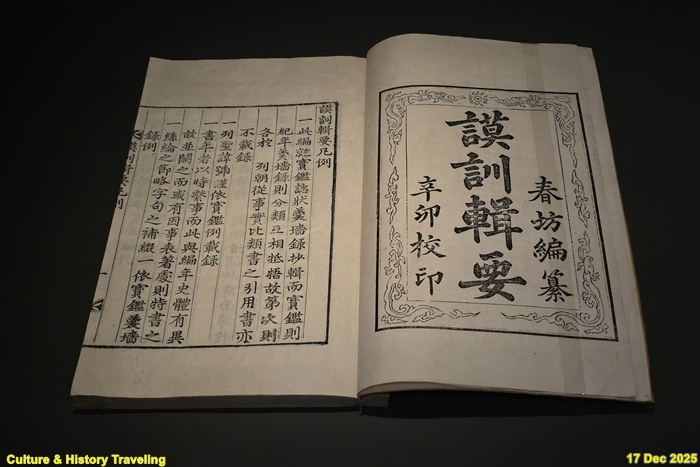 春坊編纂
謨訓輯要
辛卯校印
謨訓輯要凡例
一此編就寶鑑誌狀羹墻錄抄輯而寶鑑則
紀年羹墻錄則分類互相抵捂故第次則
各於 列朝從事實比類書之引用書亦
不載錄
一列聖諱號謹依寶鑑例載錄
一書年者以時繫事而此與編年史體有異
故並闕之而或有因事表著處則特書之
一絲綸之節略字句之補綴一依寶鑑羹墻
錄例
Culture & History Traveling
17 Dec 2025